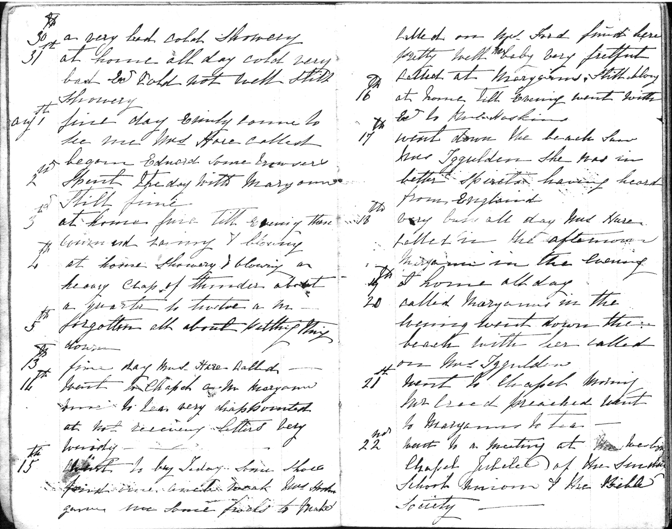 30th a very bad cold Showery
31th at home all day cold very
bad Ed Cold not well Still
Showery
1th fine day Emily came to
see me Mrs Hare called
began Edward some trowsers
2nd Spent the day with Maryann
Still fine
3rd at home fine till Evening then
rainy & blowing
4th at home Showery & blowing a
heavy Clap of thunder about
a quarter to twelve a m
5th forgotten all about putting this
down
13th fine day Mrs Hare called
14th went to Chapel Mr Maryann
to tea very disappointed
at not receiving letters very
windy
15th went to buy Teday some shoes
find one weak Mrs
gave me some frocks to make
called on Mrs Ford find here
pretty well the baby very fretful
called at Maryanns Still blowy
16th at home till Evening went with
Ed to Hoskins
17th went down the beach saw
Mrs Iggulden she was in
better Spirits having heard
from England
18th very busy all day Mrs Hare
called in the afternoon
Maryann in the Evening
19th at home all day
20 called Maryanns in the
Evening went down the
beach with her called
on Mrs Iggulden
21st went to Chapel morning
Mr Creed preached went
to Maryanns to tea
22nd went to a meeting at
Chapel Jubilee of the Sunday
School Union & the Bible
Society